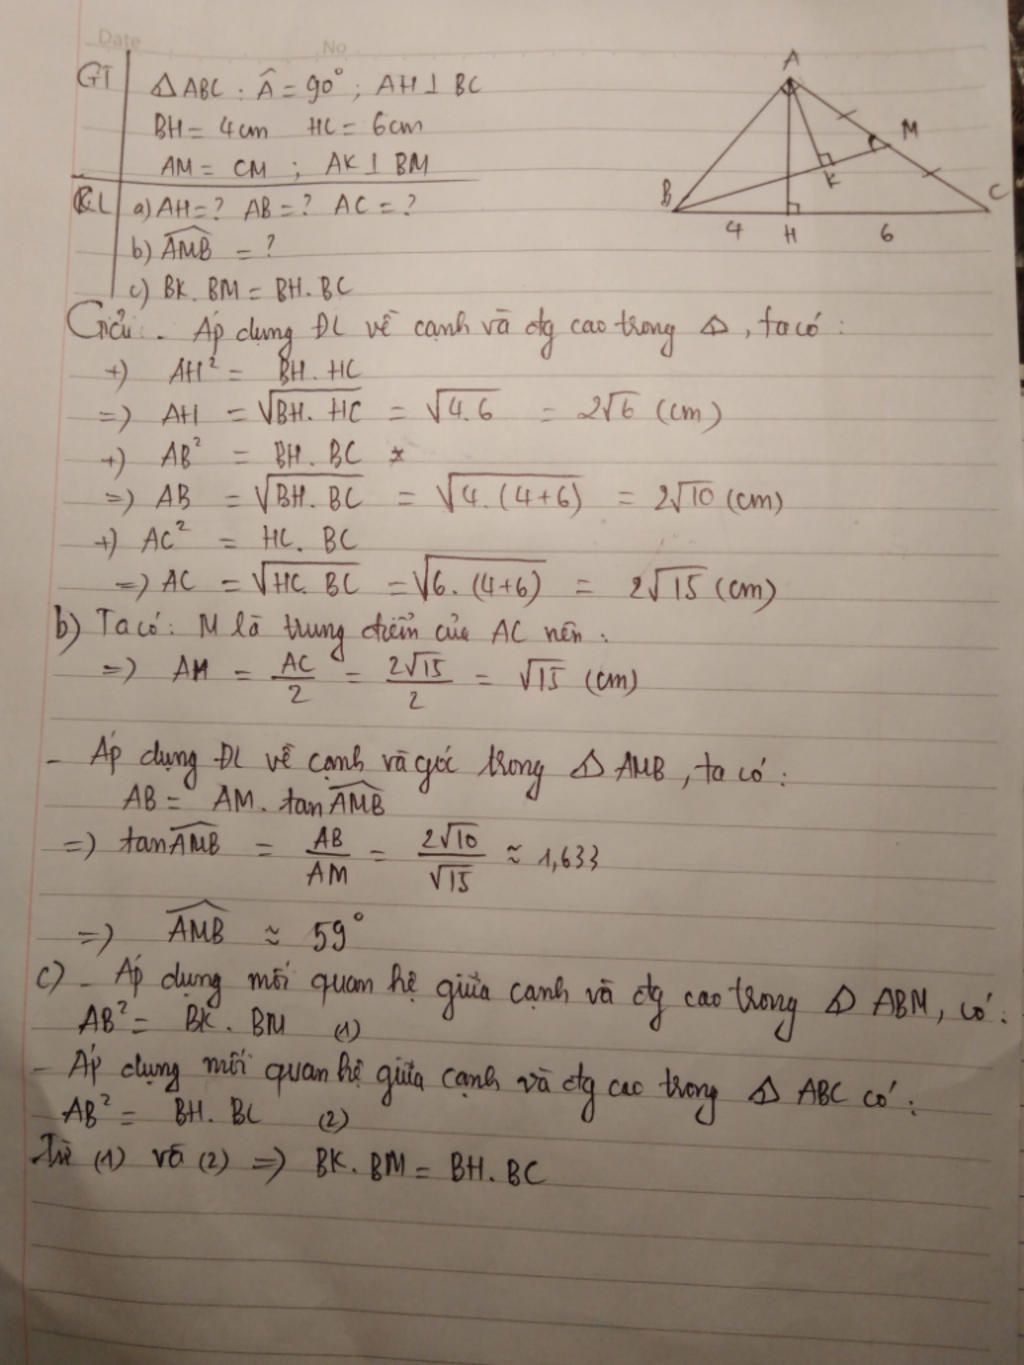 Date No
GT ΔABC : Â = 90°; AH ⊥ BC
BH = 4cm HC = 6cm
AM = CM ; AK ⊥ BM
KL a) AH = ? AB = ? AC = ?
b) AMB = ?
c) BK. BM = BH. BC
A
M
B
K
C
4 H 6
Giải: - Áp dụng ĐL về cạnh và đg cao trong Δ, ta có :
+) AH² = BH. HC
=> AH = √BH. HC = √4.6 = 2√6 (cm)
+) AB² = BH. BC *
=> AB = √BH. BC = √4. (4+6) = 2√10 (cm)
+) AC² = HC. BC
=> AC = √HC. BC = √6. (4+6) = 2√15 (cm)
b) Ta có: M là trung điểm của AC nên :
=> AM = AC/2 = 2√15/2 = √15 (cm)
- Áp dụng ĐL về cạnh và góc trong Δ AMB, ta có :
AB = AM. tan AMB
=> tan AMB = AB/AM = 2√10/√15 ≈ 1,633
=> AMB ≈ 59°
c) - Áp dụng mối quan hệ giữa cạnh và đg cao trong Δ ABM, có :
AB² = BK. BM (1)
- Áp dụng mối quan hệ giữa cạnh và đg cao trong Δ ABC có :
AB² = BH. BC (2)
Từ (1) và (2) => BK. BM = BH. BC